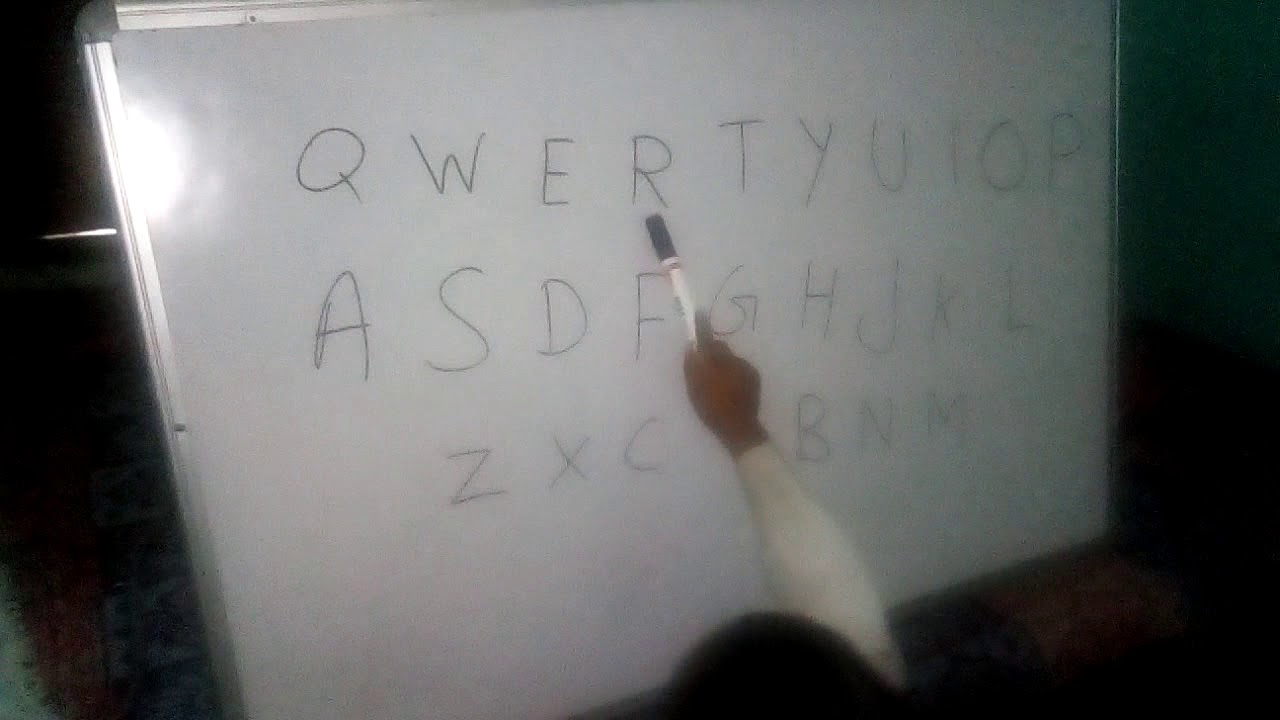 Q W E R T Y U I O P
A S D F G H J K L
Z X C B N M